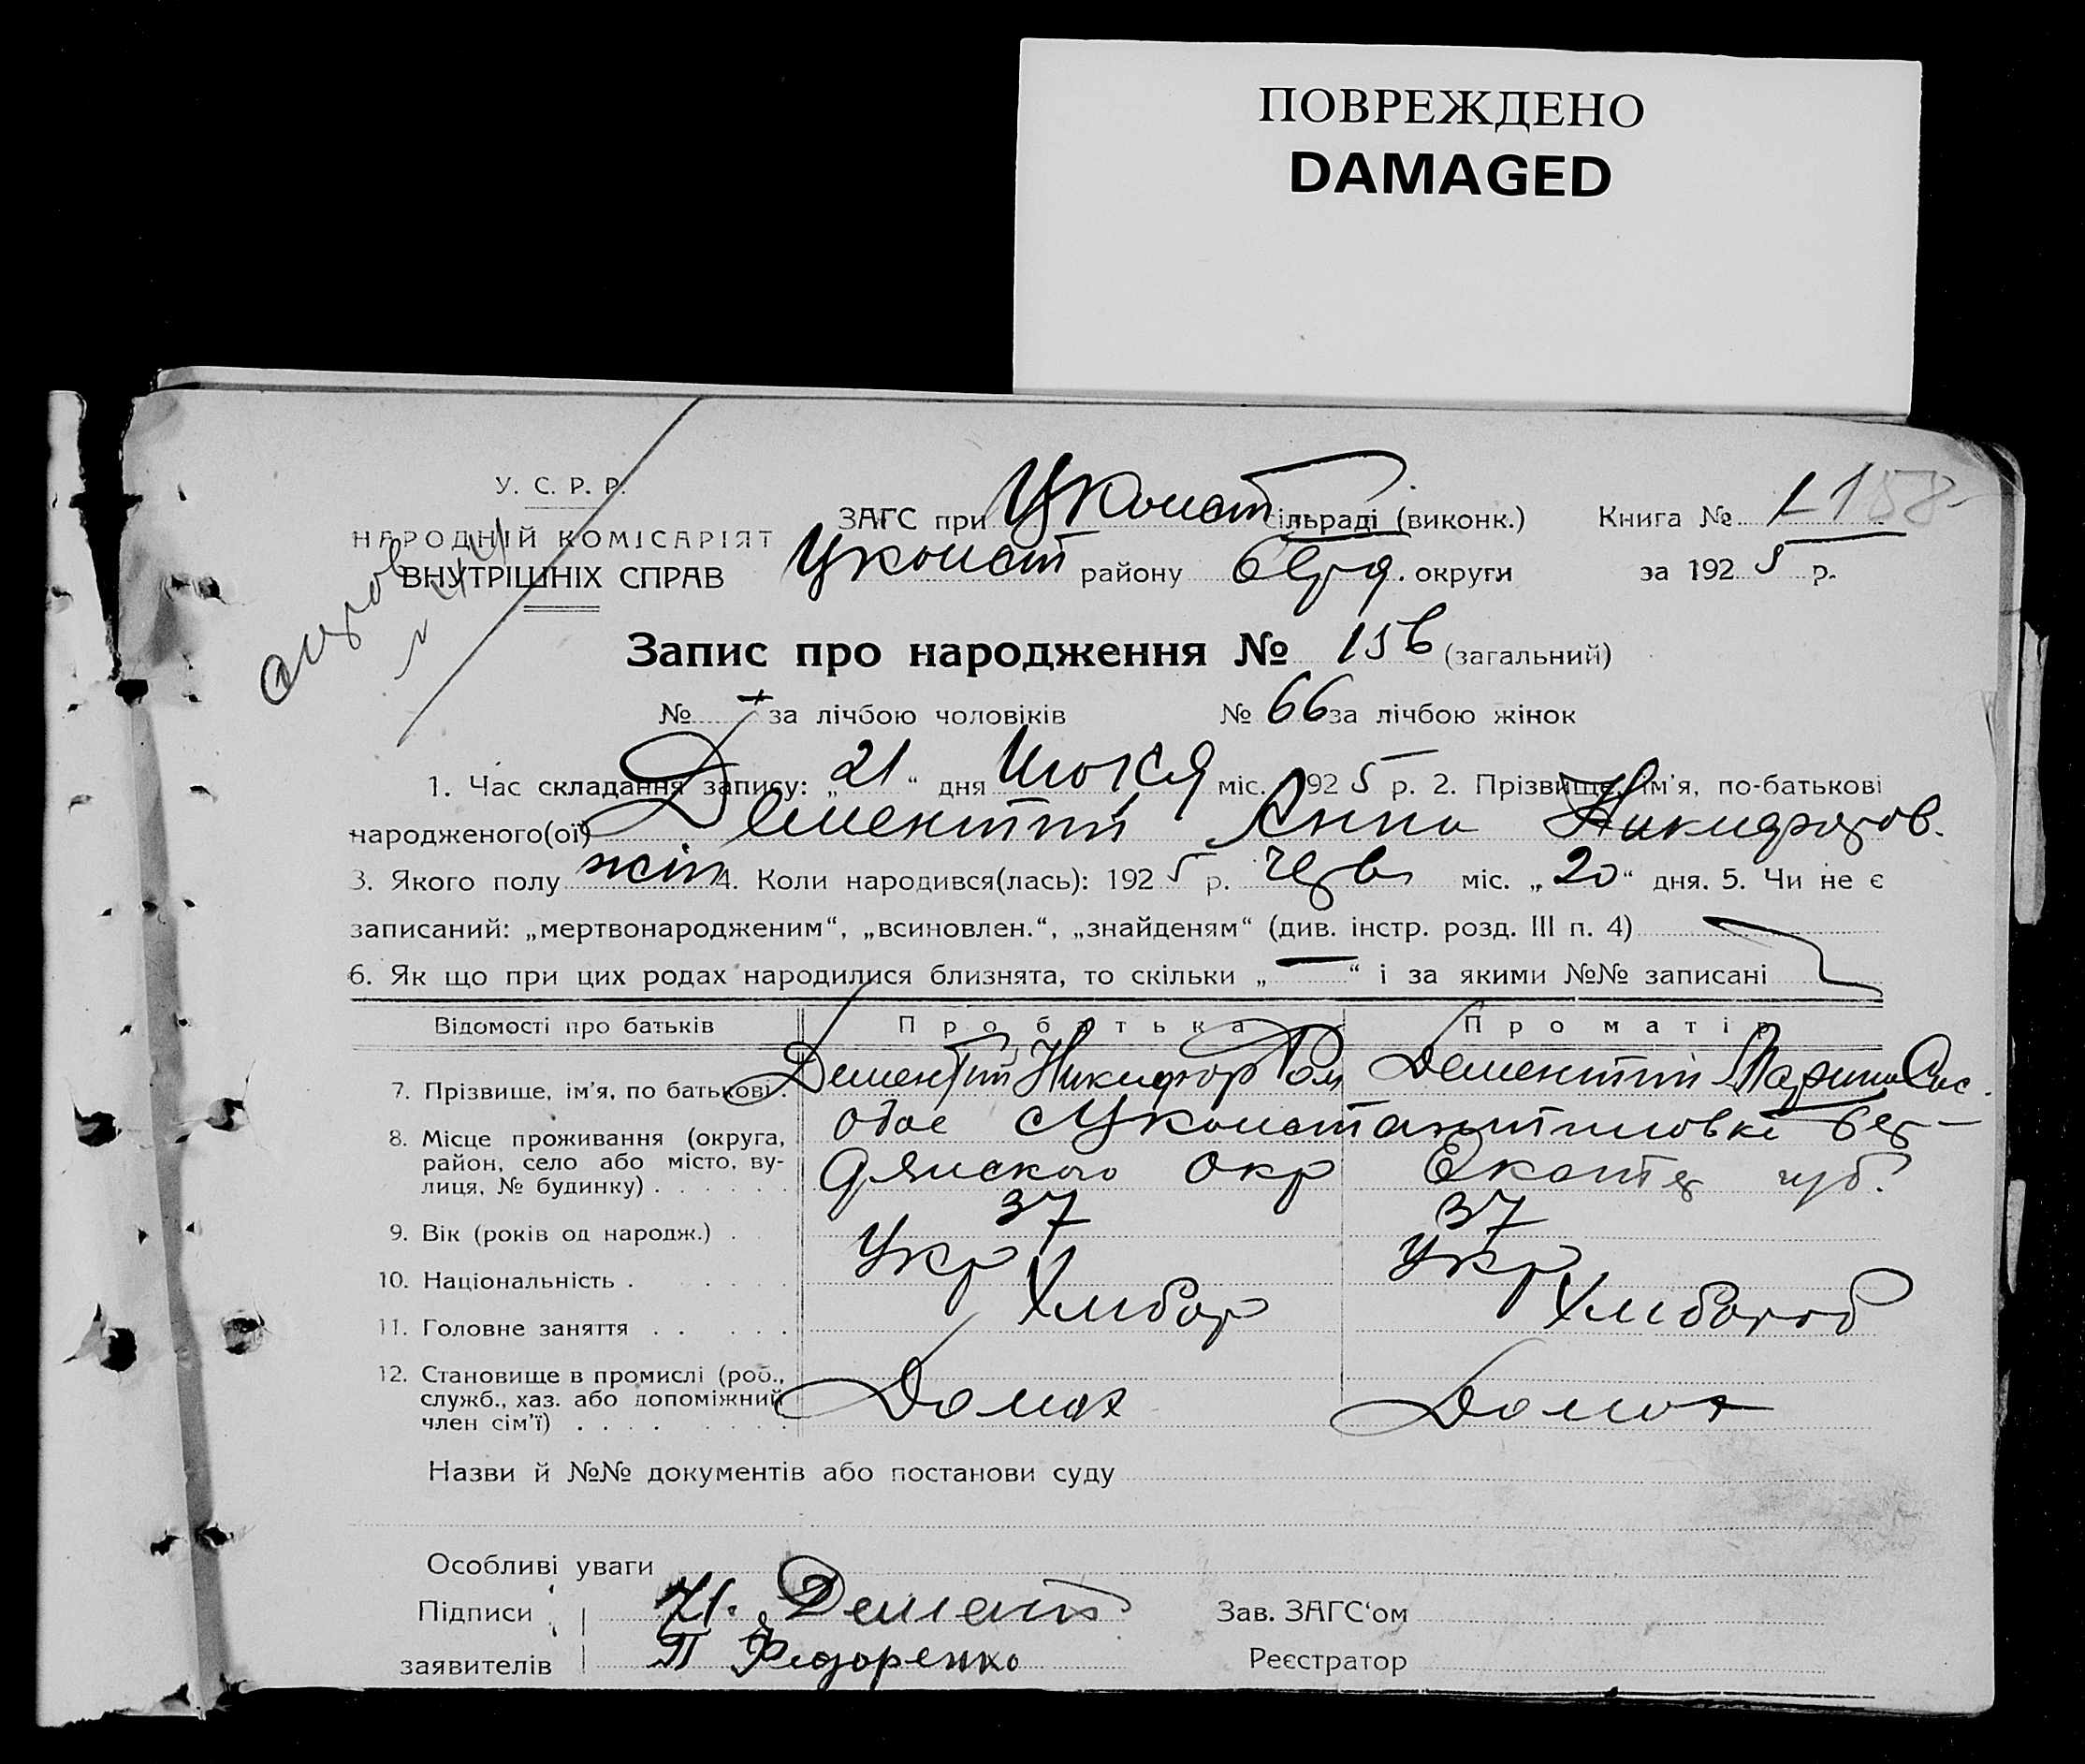 ПОВРЕЖДЕНО
DAMAGED
У. С. Р. Р.
НАРОДНІЙ КОМІСАРІЯТ
ВНУТРІШНІХ СПРАВ
ЗАГС при Цконст сільраді (виконк.) Книга № 1 158
Цконст району Берд. округи за 1925 р.
Запис про народження № 156 (загальний)
№ за лічбою чоловіків № 66 за лічбою жінок
1. Час складання запису: „21“ дня міс. 1925 р. 2. Прізвище, ім'я, по-батькові
народженого(ої) Дементий Анна Никифоров.
3. Якого полу жін 4. Коли народився(лась): 1925 р. черв міс. „20“ дня. 5. Чи не є
записаний: „мертвонародженим“, „всиновлен.“, „знайденям“ (див. інстр. розд. III п. 4)
6. Як що при цих родах народилися близнята, то скільки „—“ і за якими №№ записані
Відомості про батьків Про батька Про матір
7. Прізвище, ім'я, по батькові. Дементий Никифор Ром Дементий Марина Сас.
8. Місце проживання (округа, район, село або місто, вулиця, № будинку) обое с Цконстантиновкі Бер-
дянского окр Екатер губ.
9. Вік (років од народж.) 37 37
10. Національність Укр Укр
11. Головне заняття Хлибор Хлибороб
12. Становище в промислі (роб., служб., хаз. або допоміжний член сім'ї)
Назви й №№ документів або постанови суду
Особливі уваги
Підписи Н. Демент Зав. ЗАГС'ом
заявителів П Федоренко Реєстратор